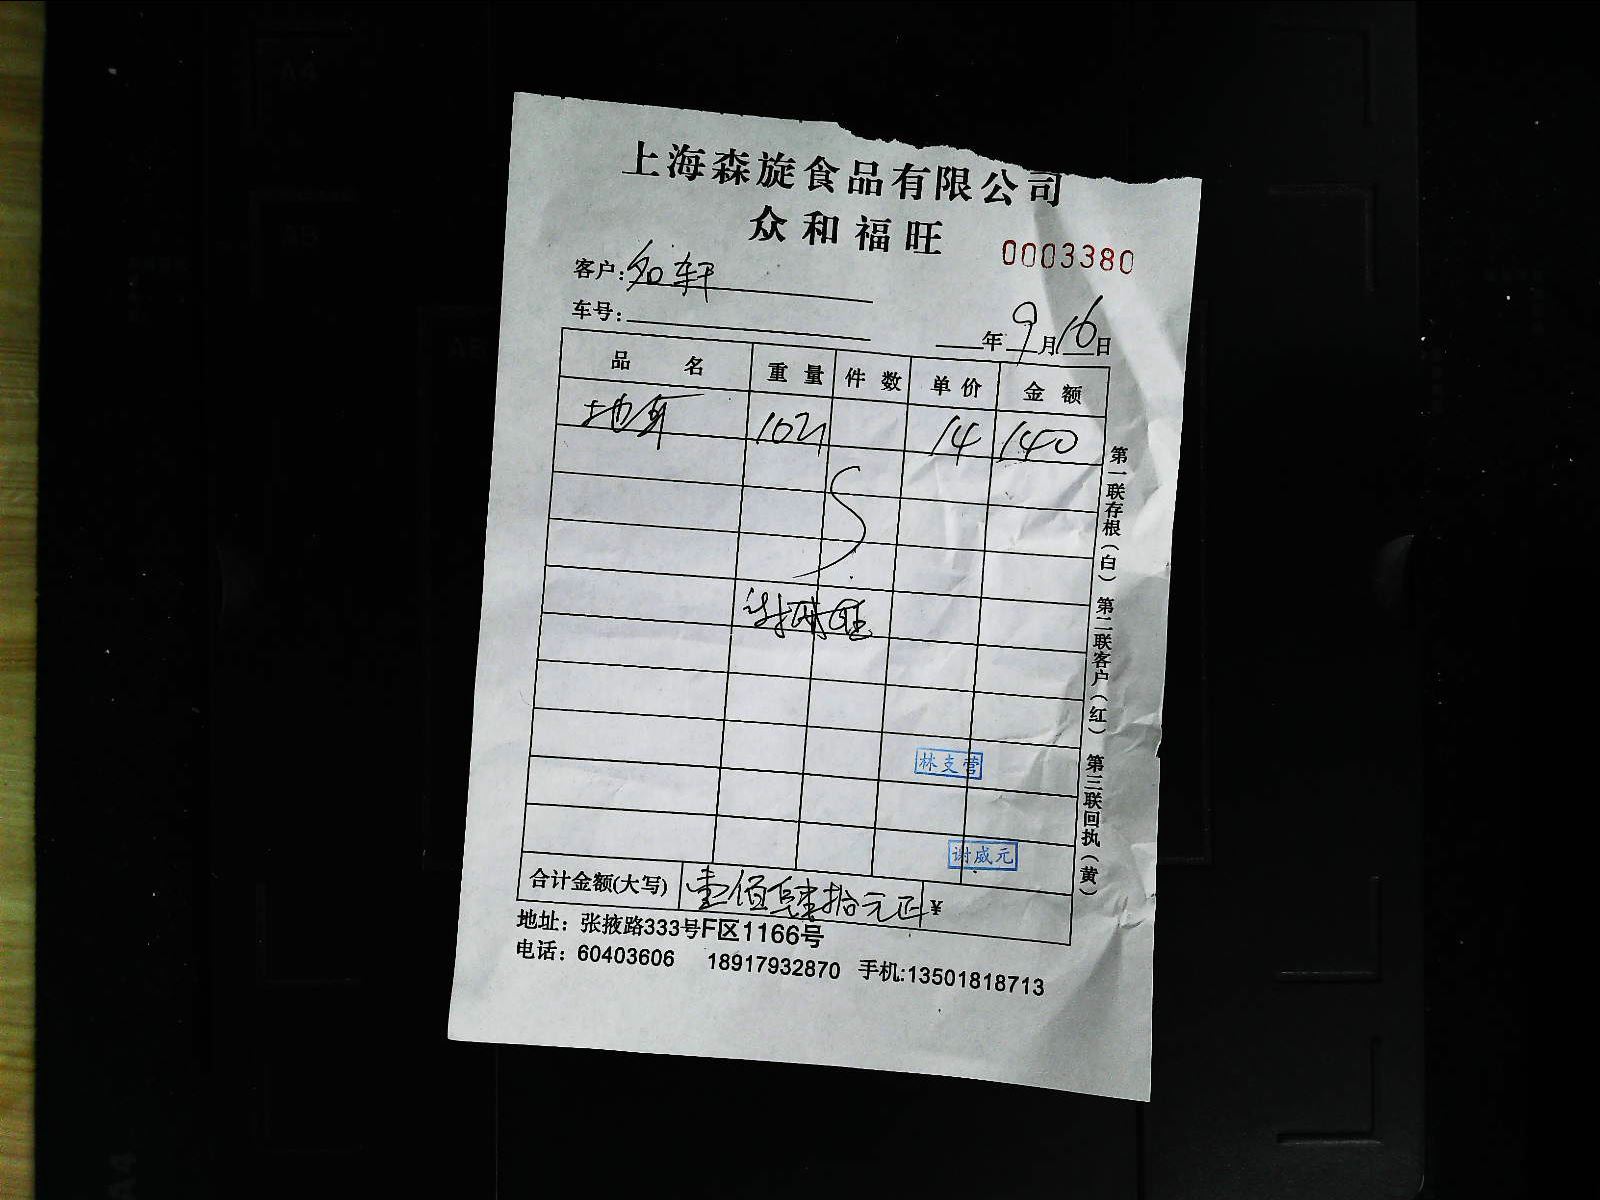 上海森旋食品有限公司
众和福旺
0003380
客户：名轩
车号：
年9月16日
品名 重量 件数 单价 金额
10斤 14 140
林支营
谢威元
合计金额(大写) 壹佰肆拾元正 ¥
地址：张掖路333号F区1166号
电话：60403606 18917932870 手机:13501818713
第一联存根（白） 第二联客户（红） 第三联回执（黄）
A4
A5